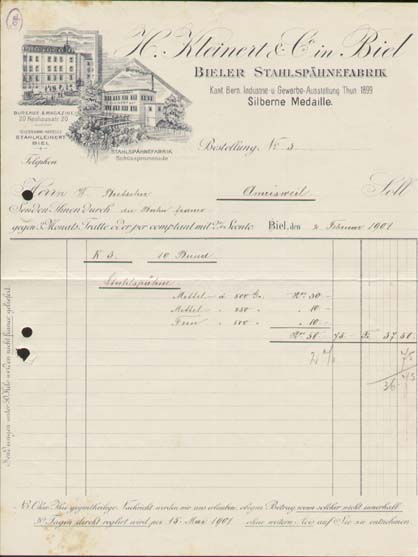 H. Kleinert & Co in Biel
BIELER STAHLSPÄHNEFABRIK
Kant. Bern. Industrie- u Gewerbe-Ausstellung Thun 1899
Silberne Medaille.
BUREAUX & MAGAZINE
20 Neuhausstr. 20
TELEGRAMM-ADRESSE
STAHLKLEINERT
BIEL
Telephon
STAHLSPÄHNEFABRIK
Schüsspromenade
Bestellung No 3
Herrn
Soll
Senden Ihnen durch die franco
gegen 3 Monats Tratte oder per comptant mit 2% Sconto.
Biel, den 2. Februar 1901
K 3. 10 Bund
Stahlspähne
Mittel à 500 gr. 30 —
Mittel " 250 " 10 —
Fein " 500 " 10 —
50 75 Fr 37 50
2 % 75
36 75
Sendungen unter 50 Kilo werden nicht franco geliefert.
NB. Ohne Ihre gegentheilige Nachricht werden wir uns erlauben, obigen Betrag wenn solcher nicht innerhalb
30 Tagen direkt reglirt wird per 15. Mai 1901 ohne weitern Avis auf Sie zu entnehmen.